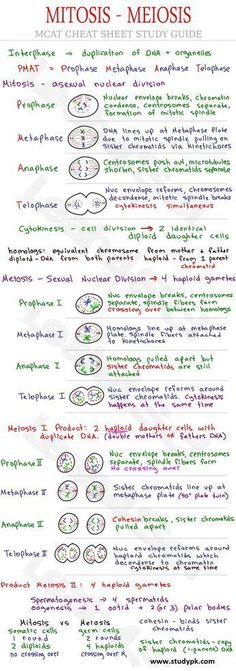 MITOSIS - MEIOSIS
MCAT CHEAT SHEET STUDY GUIDE
Interphase → duplication of DNA + organelles
PMAT = Prophase Metaphase Anaphase Telophase
Mitosis - asexual nuclear division
Prophase
Nuclear envelope breaks, chromatin
condense, centrosomes separate,
formation of mitotic spindle
Metaphase
DNA lines up at Metaphase Plate
due to mitotic spindle, pulling on
sister chromatids via kinetochores
Anaphase
Centrosomes push out, microtubules
shorten, sister chromatids separate
Telophase
Nuc envelope reforms, chromosomes
decondense, mitotic spindle breaks
Cytokinesis simultaneous
Cytokinesis - cell division → 2 identical
diploid daughter cells
homologs: equivalent chromosome from mother + father
diploid - DNA from both parents haploid - from 1 parent
chromatid
Meiosis - Sexual Nuclear Division → 4 haploid gametes
Prophase I
Nuc envelope breaks, centrosomes
separate, spindle fibers form
crossing over between homologs
Metaphase I
Homologs line up at metaphase
plate, Spindle fibers attached
to kinetochores
Anaphase I
Homologs pulled apart but
sister chromatids are
still attached
Telophase I
Nuc envelope reforms around
sister chromatids. Cytokinesis
happens at the same time
Meiosis I Product: 2 haploid daughter cells with
duplicate DNA. (double mothers or fathers DNA)
Prophase II
Nuc envelope breaks, centrosomes
separate, spindle fibers form
No crossing over
Metaphase II
Sister chromatids line up at
metaphase plate (90° plate turn)
Anaphase II
Cohesin breaks, sister chromatids
pulled apart
Telophase II
Nuc envelope reforms around
haploid chromatids which
decondense to chromatin
Cytokinesis at same time
Product Meiosis II: 4 haploid gametes
Spermatogenesis → 4 spermatids
oogenesis → 1 ootid + 2 (or 3) polar bodies
Mitosis vs Meiosis
somatic cells germ cells
1 round 2 rounds
2 diploids 4 haploids
no crossing over crossing over I
cohesin - binds sister
chromatids
Sister chromatids (1 parent)
copy of DNA
www.studypk.com